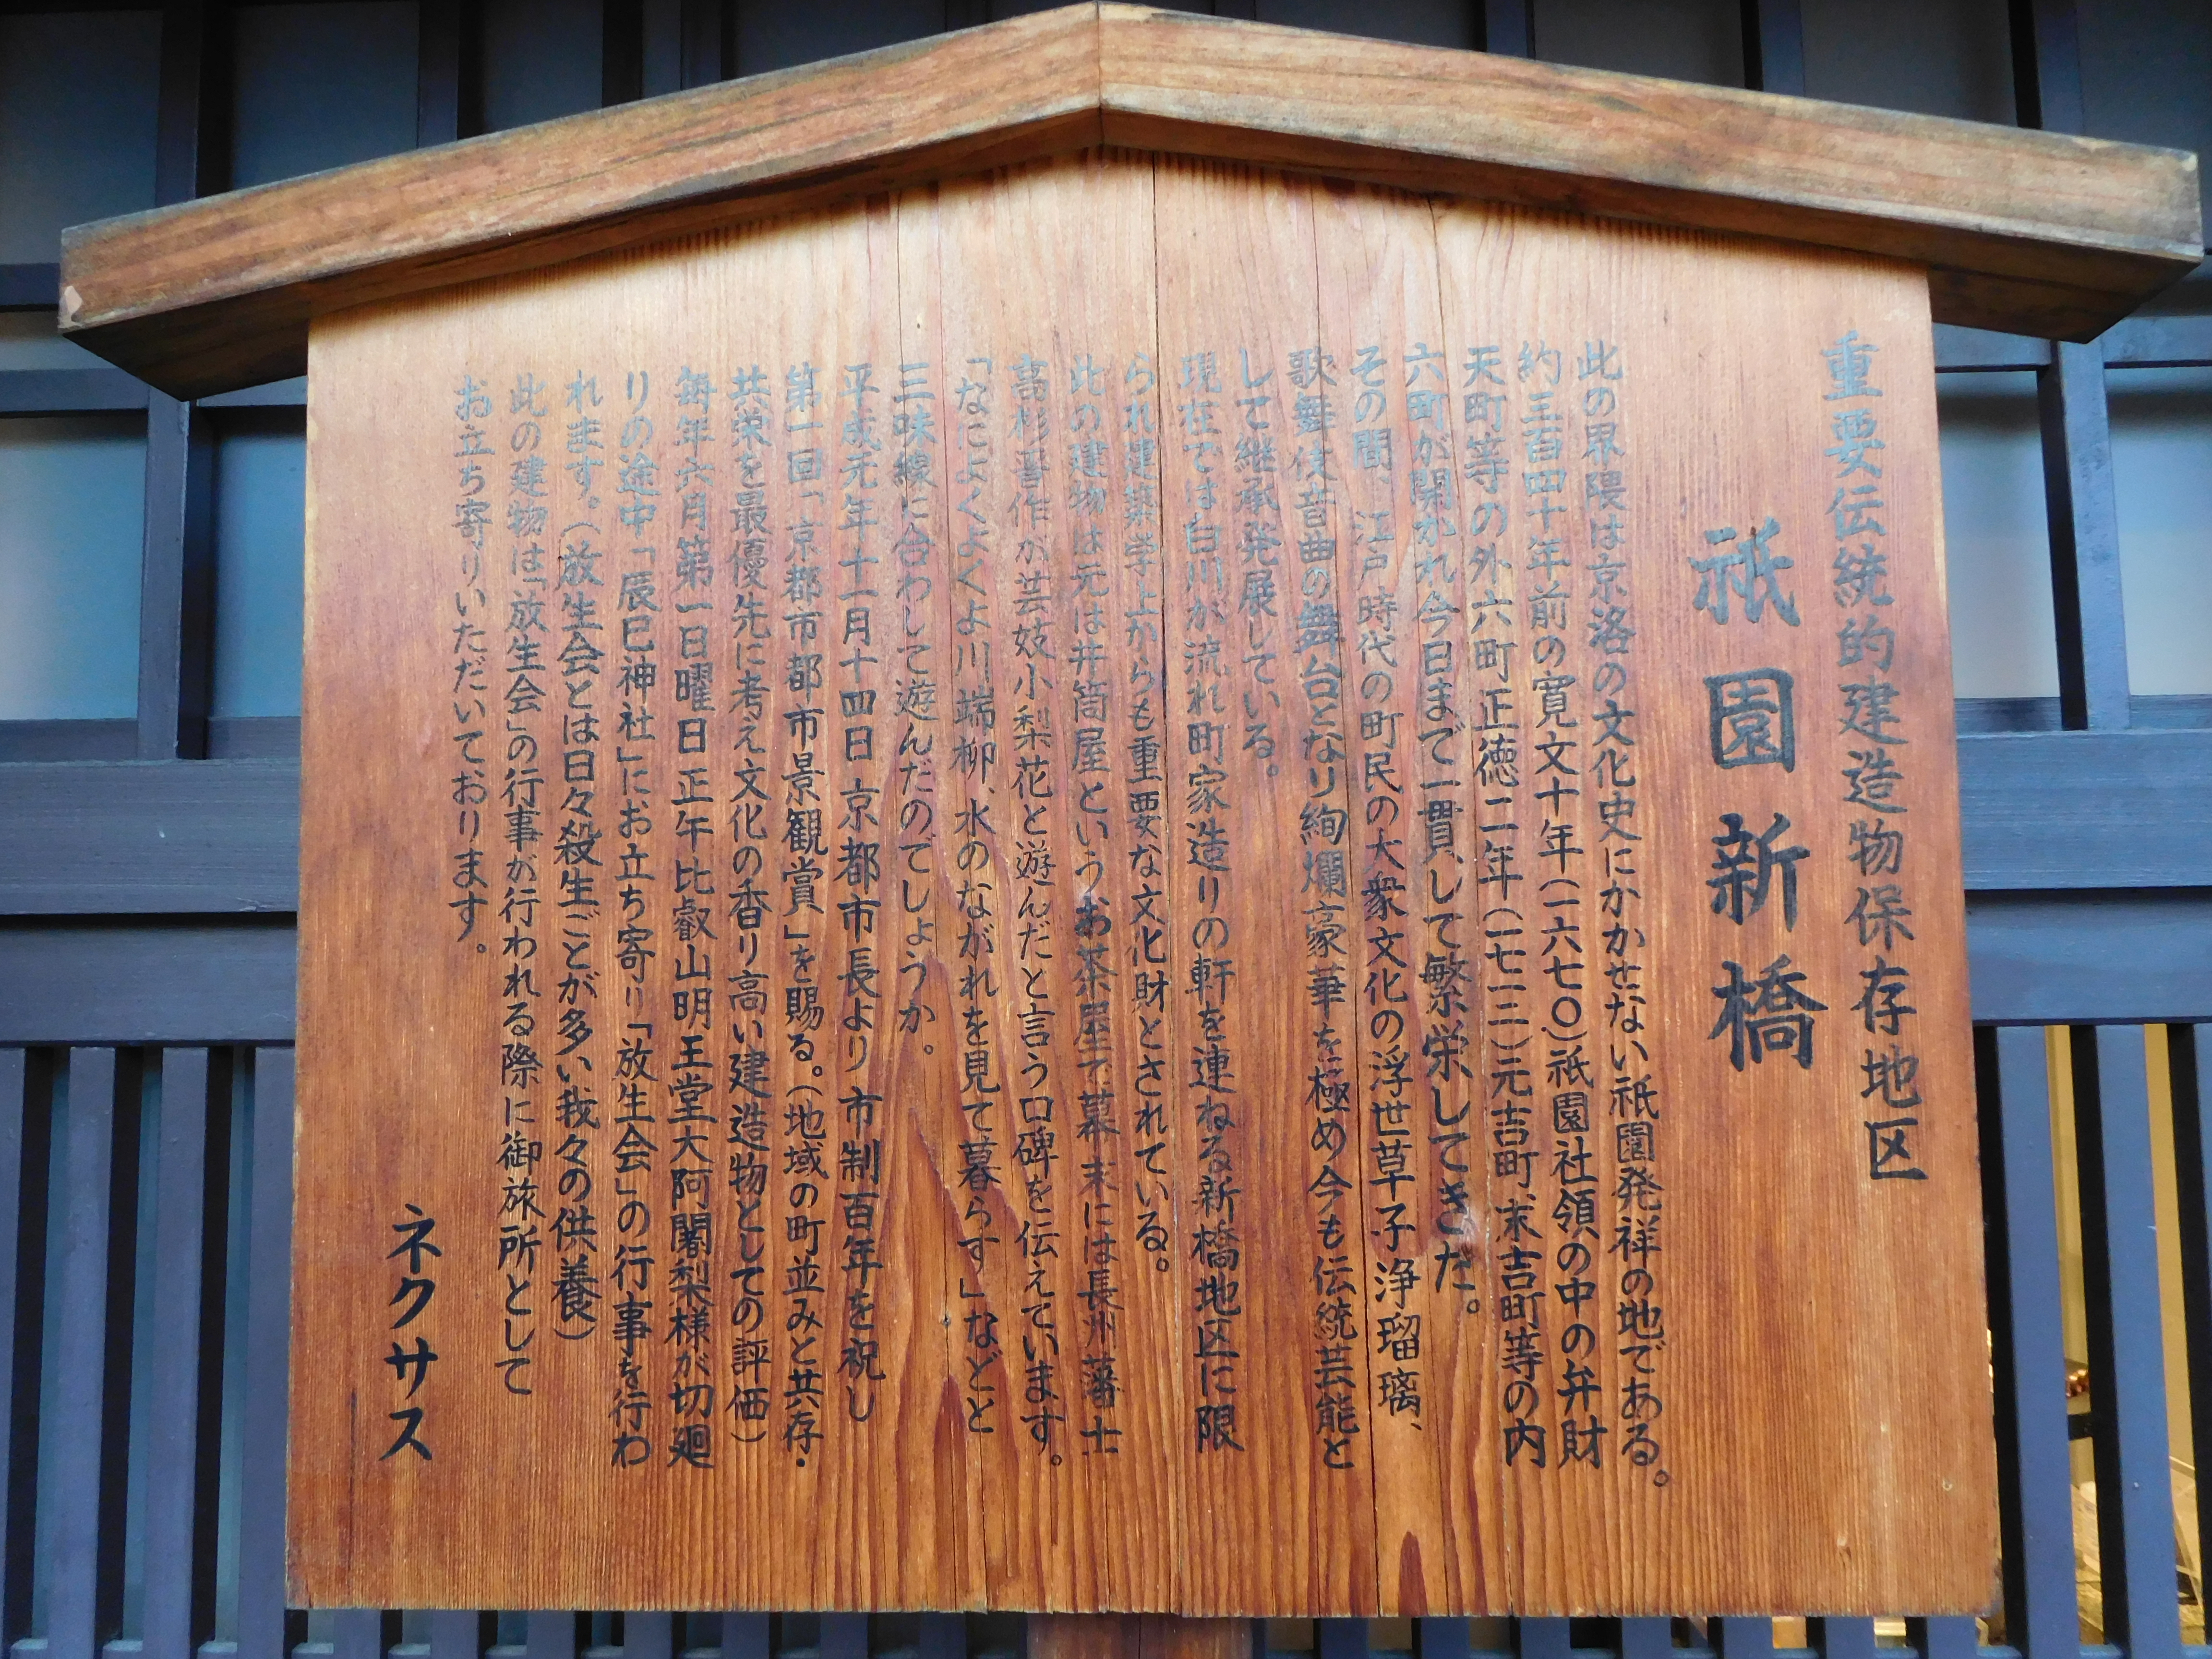 重要伝統的建造物保存地区
祇園新橋
此の界隈は京洛の文化史にかかせない祇園発祥の地である。
約三百四十年前の寛文十年（一六七〇）祇園社領の中の弁財
天町等の外六町正徳二年（一七一二）元吉町、末吉町等の内
六町が開かれ今日まで一貫して繁栄してきた。
その間、江戸時代の町民の大衆文化の浮世草子浄瑠璃、
歌舞伎音曲の舞台となり絢爛豪華を極め今も伝統芸能と
して継承発展している。
現在では白川が流れ町家造りの軒を連ねる新橋地区に限
られ建築学上からも重要な文化財とされている。
此の建物は元は井筒屋というお茶屋で幕末には長州藩士
高杉晋作が芸妓小梨花と遊んだと言う口碑を伝えています。
「なにょくよくよ川端柳、水のながれを見て暮らす」などと
三味線に合わして遊んだのでしょうか。
平成元年十一月十四日京都市長より市制百年を祝し
第一回「京都市都市景観賞」を賜る。（地域の町並みと共存・
共栄を最優先に考え文化の香り高い建造物としての評価）
毎年六月第一日曜日正午比叡山明王堂大阿闍梨様が切廻
りの途中「辰巳神社」にお立ち寄り「放生会」の行事を行わ
れます。（放生会とは日々殺生ごとが多い我々の供養）
此の建物は「放生会」の行事が行われる際に御旅所として
お立ち寄りいただいております。
ネクサス